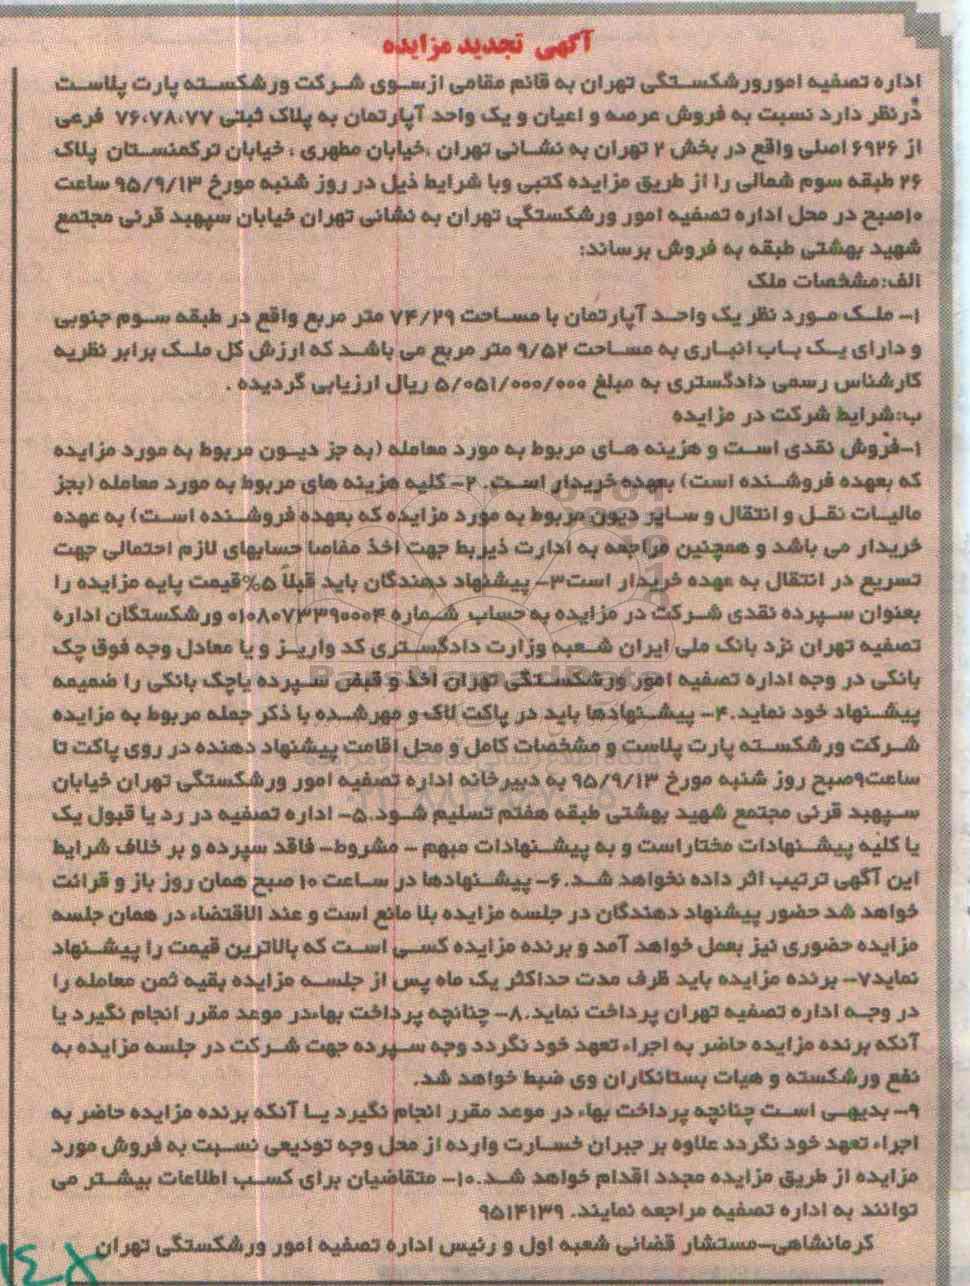 آگهی تجدید مزایده
اداره تصفیه امورورشکستگی تهران به قائم مقامی ازسوی شرکت ورشکسته پارت پلاست
درنظر دارد نسبت به فروش عرصه و اعیان و یک واحد آپارتمان به پلاک ثبتی ۷۶،۷۸،۷۷ فرعی
از ۶۹۲۶ اصلی واقع در بخش ۲ تهران به نشانی تهران ،خیابان مطهری ، خیابان ترکمنستان پلاک
۲۶ طبقه سوم شمالی را از طریق مزایده کتبی وبا شرایط ذیل در روز شنبه مورخ ۹۵/۹/۱۳ ساعت
۱۰صبح در محل اداره تصفیه امور ورشکستگی تهران به نشانی تهران خیابان سپهبد قرنی مجتمع
شهید بهشتی طبقه به فروش برساند:
الف:مشخصات ملک
۱- ملک مورد نظر یک واحد آپارتمان با مساحت ۷۴/۲۹ متر مربع واقع در طبقه سوم جنوبی
و دارای یک باب انباری به مساحت ۹/۵۲ متر مربع می باشد که ارزش کل ملک برابر نظریه
کارشناس رسمی دادگستری به مبلغ ۵/۰۵۱/۰۰۰/۰۰۰ ریال ارزیابی گردیده .
ب:شرایط شرکت در مزایده
۱-فروش نقدی است و هزینه های مربوط به مورد معامله (به جز دیون مربوط به مورد مزایده
که بعهده فروشنده است) بعهده خریدار است. ۲- کلیه هزینه های مربوط به مورد معامله (بجز
مالیات نقل و انتقال و سایر دیون مربوط به مورد مزایده که بعهده فروشنده است) به عهده
خریدار می باشد و همچنین مراجعه به ادارت ذیربط جهت اخذ مفاصا حسابهای لازم احتمالی جهت
تسریع در انتقال به عهده خریدار است۳- پیشنهاد دهندگان باید قبلاً ۵%قیمت پایه مزایده را
بعنوان سپرده نقدی شرکت در مزایده به حساب شماره ۰۱۰۸۰۷۳۳۹۰۰۰۴ ورشکستگان اداره
تصفیه تهران نزد بانک ملی ایران شعبه وزارت دادگستری کد واریز و یا معادل وجه فوق چک
بانکی در وجه اداره تصفیه امور ورشکستگی تهران اخذ و قبض سپرده یاچک بانکی را ضمیمه
پیشنهاد خود نماید.۴- پیشنهادها باید در پاکت لاک و مهرشده با ذکر جمله مربوط به مزایده
شرکت ورشکسته پارت پلاست و مشخصات کامل و محل اقامت پیشنهاد دهنده در روی پاکت تا
ساعت۹صبح روز شنبه مورخ ۹۵/۹/۱۳ به دبیرخانه اداره تصفیه امور ورشکستگی تهران خیابان
سپهبد قرنی مجتمع شهید بهشتی طبقه هفتم تسلیم شود.۵- اداره تصفیه در رد یا قبول یک
یا کلیه پیشنهادات مختاراست و به پیشنهادات مبهم - مشروط- فاقد سپرده و بر خلاف شرایط
این آگهی ترتیب اثر داده نخواهد شد.۶- پیشنهادها در ساعت ۱۰ صبح همان روز باز و قرائت
خواهد شد حضور پیشنهاد دهندگان در جلسه مزایده بلا مانع است و عند الاقتضاء در همان جلسه
مزایده حضوری نیز بعمل خواهد آمد و برنده مزایده کسی است که بالاترین قیمت را پیشنهاد
نماید۷- برنده مزایده باید ظرف مدت حداکثر یک ماه پس از جلسه مزایده بقیه ثمن معامله را
در وجه اداره تصفیه تهران پرداخت نماید.۸- چنانچه پرداخت بهاءدر موعد مقرر انجام نگیرد یا
آنکه برنده مزایده حاضر به اجراء تعهد خود نگردد وجه سپرده جهت شرکت در جلسه مزایده به
نفع ورشکسته و هیات بستانکاران وی ضبط خواهد شد.
۹- بدیهی است چنانچه پرداخت بهاء در موعد مقرر انجام نگیرد یا آنکه برنده مزایده حاضر به
اجراء تعهد خود نگردد علاوه بر جبران خسارت وارده از محل وجه تودیعی نسبت به فروش مورد
مزایده از طریق مزایده مجدد اقدام خواهد شد.۱۰- متقاضیان برای کسب اطلاعات بیشتر می
توانند به اداره تصفیه مراجعه نمایند. ۹۵۱۴۱۳۹
کرمانشاهی-مستشار قضائی شعبه اول و رئیس اداره تصفیه امور ورشکستگی تهران